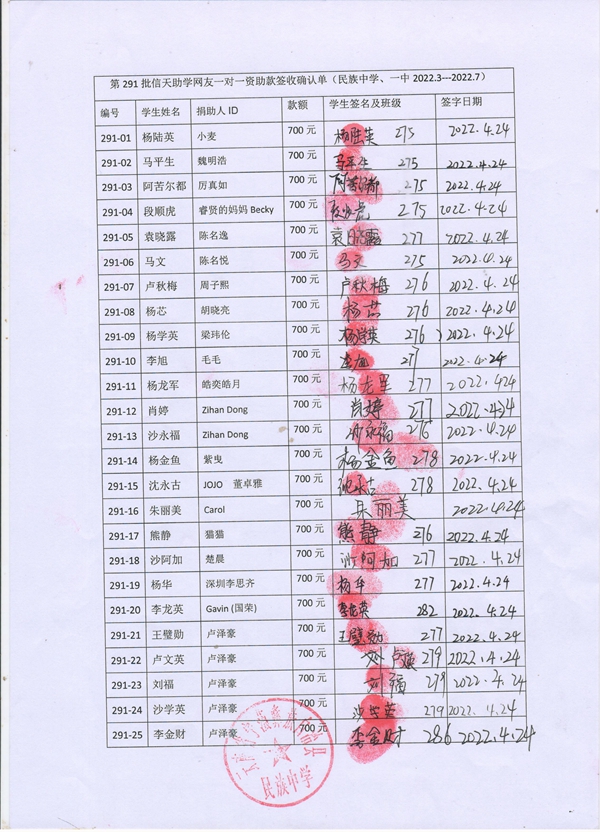 第 291 批信天助学网友一对一资助款签收确认单（民族中学、一中 2022.3---2022.7）
编号 学生姓名 捐助人 ID 款额 学生签名及班级 签字日期
291-01 杨陆英 小麦 700 元 杨陆英 275 2022.4.24
291-02 马平生 魏明浩 700 元 马平生 275 2022.4.24
291-03 阿苦尔都 厉真如 700 元 阿苦尔都 275 2022.4.24
291-04 段顺虎 睿贤的妈妈 Becky 700 元 段顺虎 275 2022.4.24
291-05 袁晓露 陈名逸 700 元 袁晓露 277 2022.4.24
291-06 马文 陈名悦 700 元 马文 275 2022.4.24
291-07 卢秋梅 周子熙 700 元 卢秋梅 276 2022.4.24
291-08 杨芯 胡晓亮 700 元 杨芯 276 2022.4.24
291-09 杨学英 梁玮伦 700 元 杨学英 276 2022.4.24
291-10 李旭 毛毛 700 元 李旭 277 2022.4.24
291-11 杨龙军 皓奕皓月 700 元 杨龙军 277 2022.424
291-12 肖婷 Zihan Dong 700 元 肖婷 277 2022.4.24
291-13 沙永福 Zihan Dong 700 元 沙永福 276 2022.4.24
291-14 杨金鱼 紫曳 700 元 杨金鱼 278 2022.4.24
291-15 沈永古 JOJO 董卓雅 700 元 沈永古 278 2022.4.24
291-16 朱丽美 Carol 700 元 朱丽美 2022.4.24
291-17 熊静 猫猫 700 元 熊静 276 2022.4.24
291-18 沙阿加 楚晨 700 元 沙阿加 277 2022.4.24
291-19 杨华 深圳李思齐 700 元 杨华 277 2022.4.24
291-20 李龙英 Gavin (国荣) 700 元 李龙英 282 2022.4.24
291-21 王璧勋 卢泽豪 700 元 王璧勋 277 2022.4.24
291-22 卢文英 卢泽豪 700 元 279 2022.4.24
291-23 刘福 卢泽豪 700 元 刘福 279 2022.4.24
291-24 沙学英 卢泽豪 700 元 沙学英 279 2022.4.24
291-25 李金财 卢泽豪 700 元 李金财 286 2022.4.24
民族中学